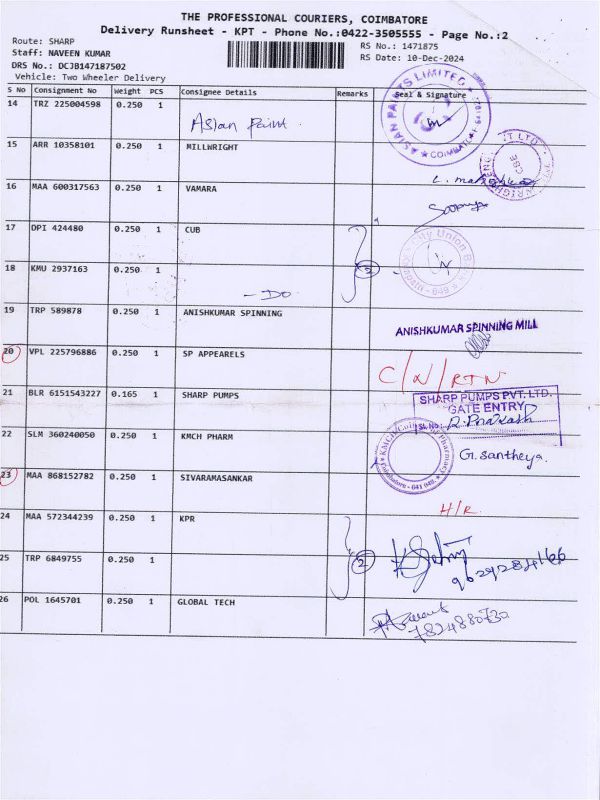 THE PROFESSIONAL COURIERS, COIMBATORE
Delivery Runsheet - KPT - Phone No.:0422-3505555 - Page No.:2
Route: SHARP
Staff: NAVEEN KUMAR
DRS No.: DCJB147187502
Vehicle: Two Wheeler Delivery
RS No.: 1471875
RS Date: 10-Dec-2024
S No Consignment No Weight PCS Consignee Details Remarks Seal & Signature
14 TRZ 225004598 0.250 1 Asian Paint.
ASIAN PAINTS LIMITED
15 ARR 10358101 0.250 1 MILLWRIGHT
CBE
16 MAA 600317563 0.250 1 VAMARA
17 DPI 424480 0.250 1 CUB
City Union B
2
18 KMU 2937163 0.250 1
- DO
19 TRP 589878 0.250 1 ANISHKUMAR SPINNING
ANISHKUMAR SPINNING MILL
20 VPL 225796886 0.250 1 SP APPEARELS
C/N/RTN
21 BLR 6151543227 0.165 1 SHARP PUMPS
SHARP PUMPS PVT. LTD.
GATE ENTRY
SL.No: R. Prakash
22 SLM 360240050 0.250 1 KMCH PHARM
G. Santheya.
23 MAA 868152782 0.250 1 SIVARAMASANKAR
H/R
24 MAA 572344239 0.250 1 KPR
2
25 TRP 6849755 0.250 1
9629284166
26 POL 1645701 0.250 1 GLOBAL TECH
7824880730